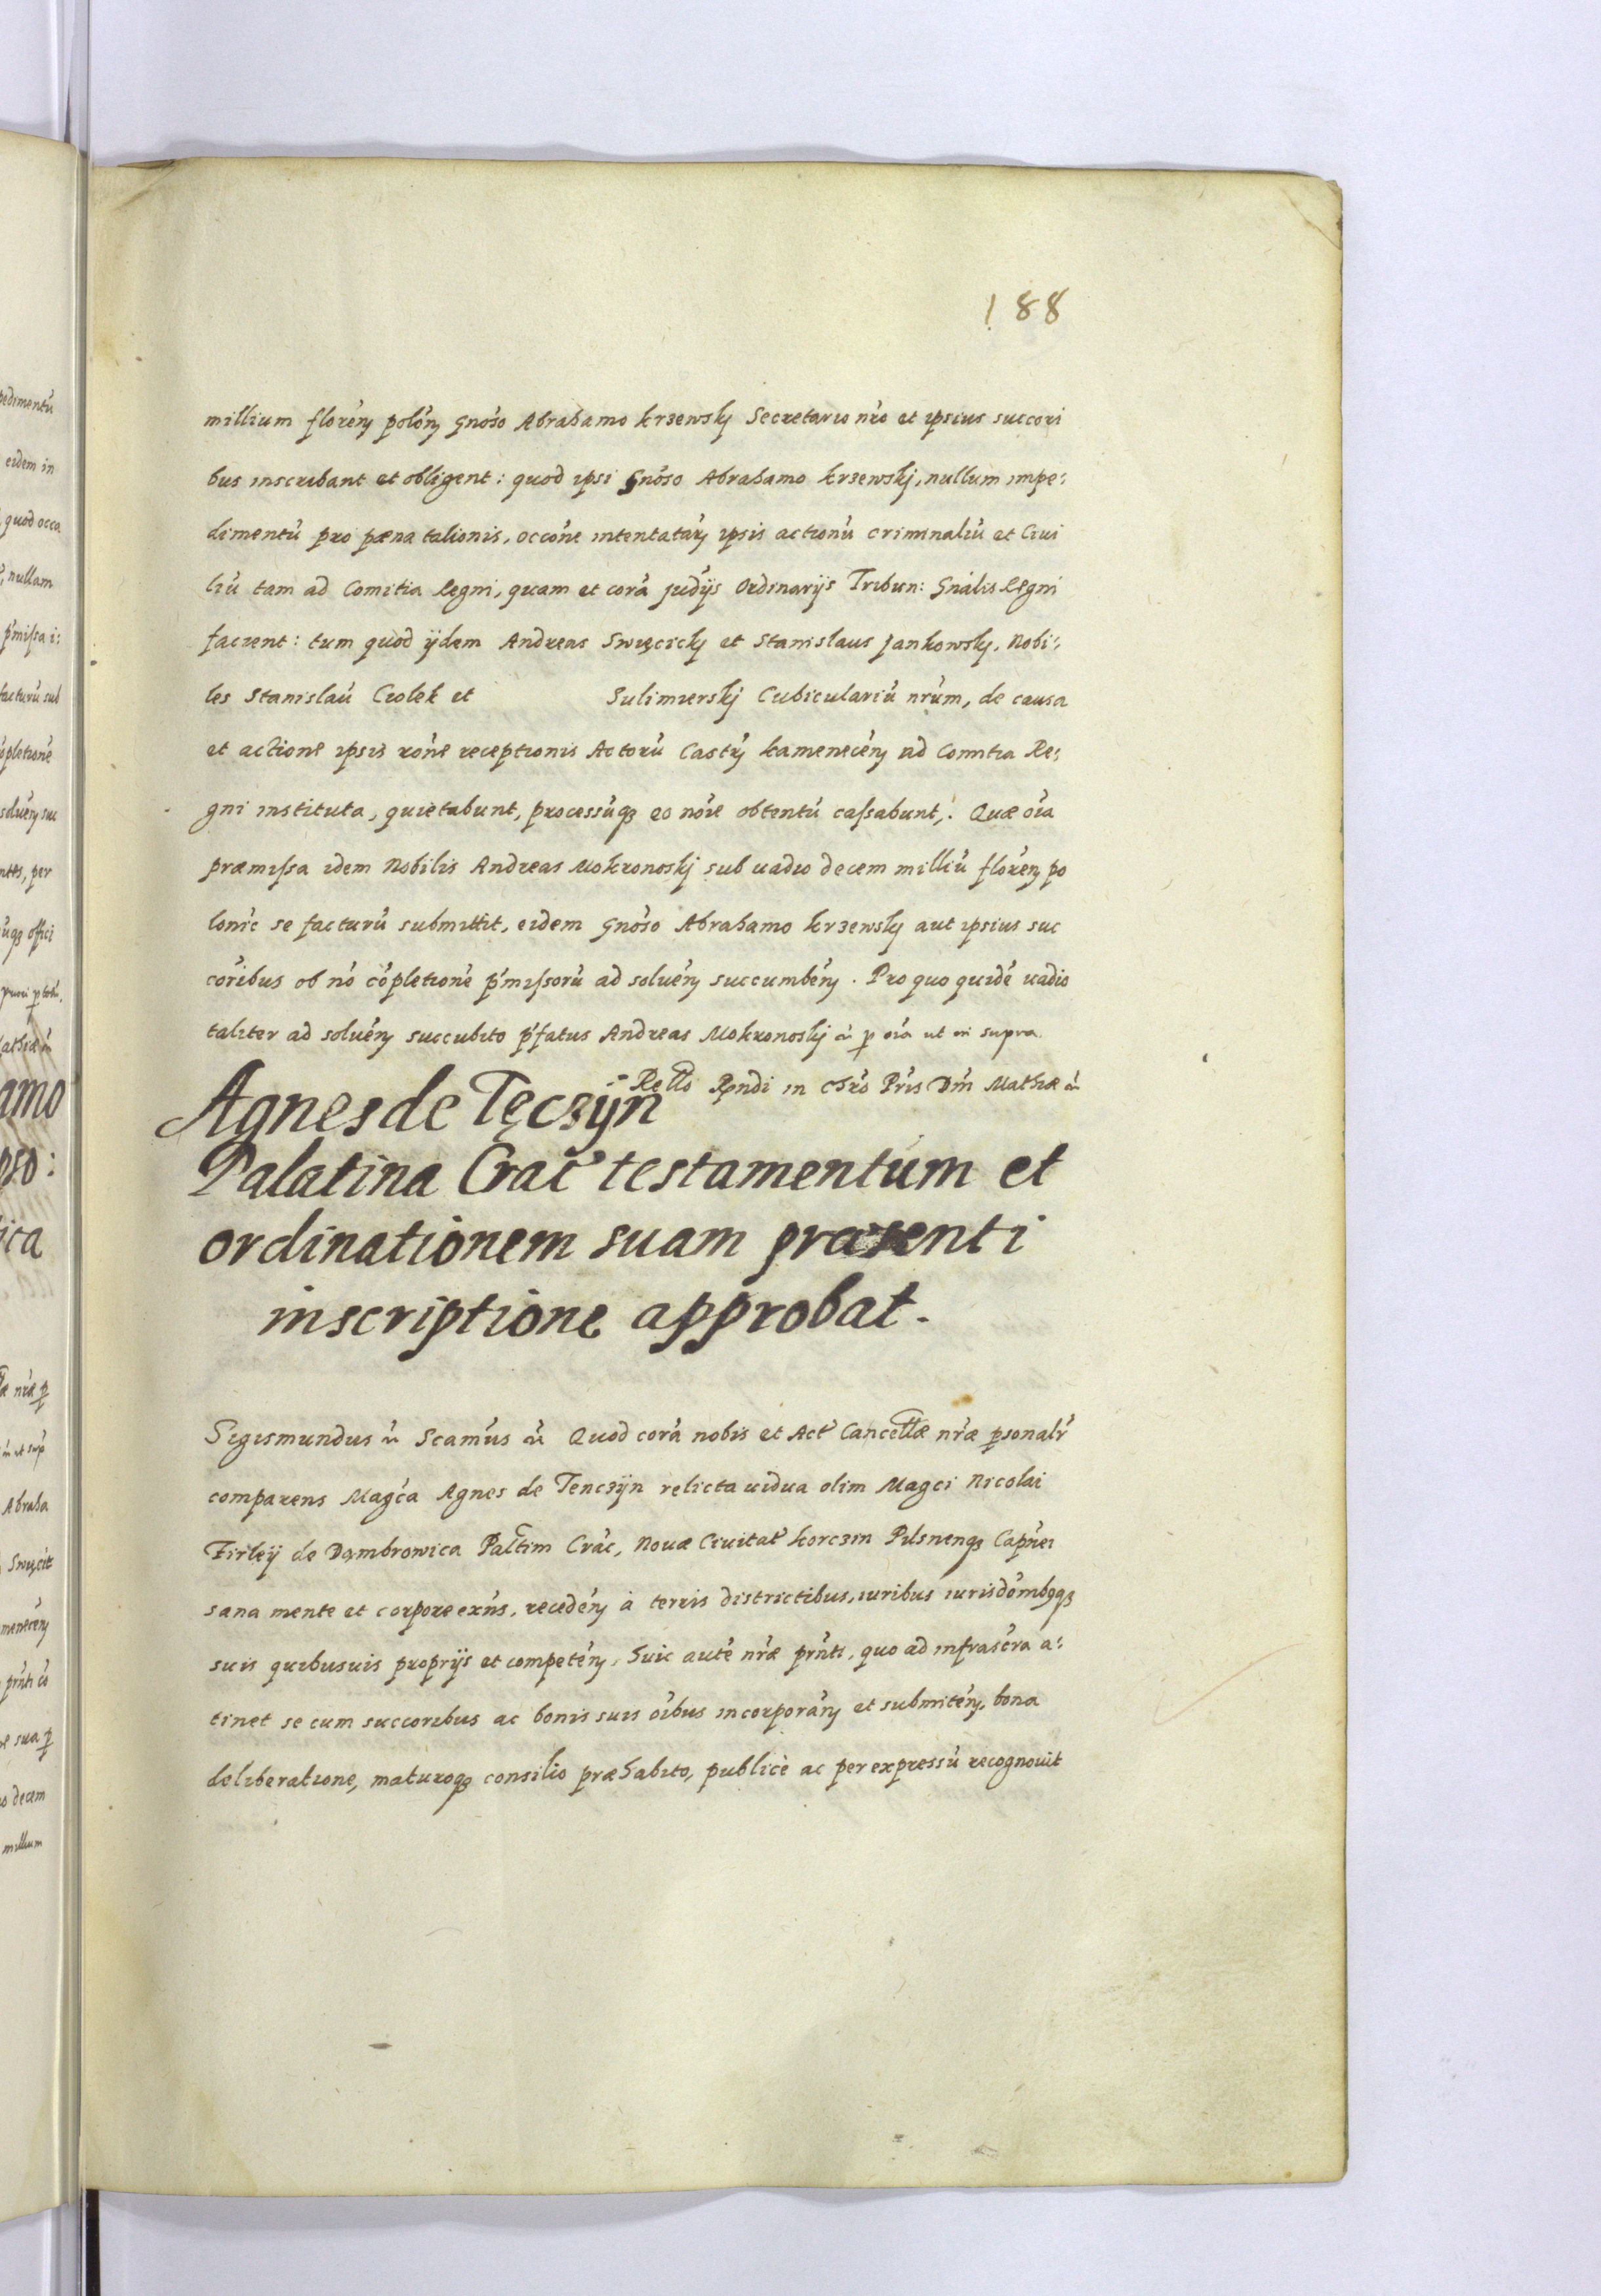 188
millium floreń polōń Gnoso Abrahamo Krzewskj Secretario nr̃o et ipsius succori
bus inscribant et obligent: quod ipsi Gnoso Abrahamo Krzewskj, nullum impe:
dimentũ pro pæna talionis, occõne intentatarʒ ipsis actionũ criminaliũ et Ciui
liũ tam ad Comitia Regni, quam et corã judijs Ordinarijs Tribun: Gnãlis Regni
facient: tum quod ijdem Andreas Swięcickj et Stanislaus Jankowskj, Nobi:
les Stanislaũ Ciolek et Sulimierskj Cubiculariũ nrũm, de causa
et actione ipsis rõne receptionis Actorũ Castrʒ Kameneceń ad Comitia Re:
gni instituta, quietabunt, processũqʒ eo nõie obtentũ cassabunt, Quæ oĩa
præmissa idem Nobilis Andreas Mokronoskj sub uadio decem milliũ floreń po
lonić se facturũ submittit, eidem Gnoso Abrahamo Krzewskj aut ipsius suc
coribus ob nõ cõpletionẽ p̃missorũ ad solueń succumbeń. Pro quo quidẽ uadio
taliter ad solueń succubito p̃fatus Andreas Mokronoskj ẽ p oĩa ut in supra
Rello Rṇdi in Chrõ Pr̃is Dñi Mathiæ ẽ
Agnes de Tęczÿn
Palatina Crac̃ testamentum et
ordinationem suam præsenti
inscriptione approbat.
Sigismundus ẽ Scamũs ẽ Quod corã nobis et Act̃ Cancellæ nr̃æ psonalr̃
comparens Magča Agnes de Tenczÿn relicta uidua olim Magci Nicolai
Firleÿ de Dąmbrowica Paltim Crac̃, Nouæ Ciuitat̃ Korczin Pilsnenqʒ Capñei
sana mente et corpore exñs, recedeń à terris districtibus, iuribus iurisdõmbʒqʒ
suis quibusuis proprijs et competeń, huic autẽ nr̃æ pr̃nti, quo ad infrascr̃a a:
tinet se cum succoribus ac bonis suis oĩbus incorporań et submiteń, bona
deliberatione, maturoqʒ consilio præhabito, publicè ac per expressũ recognouit